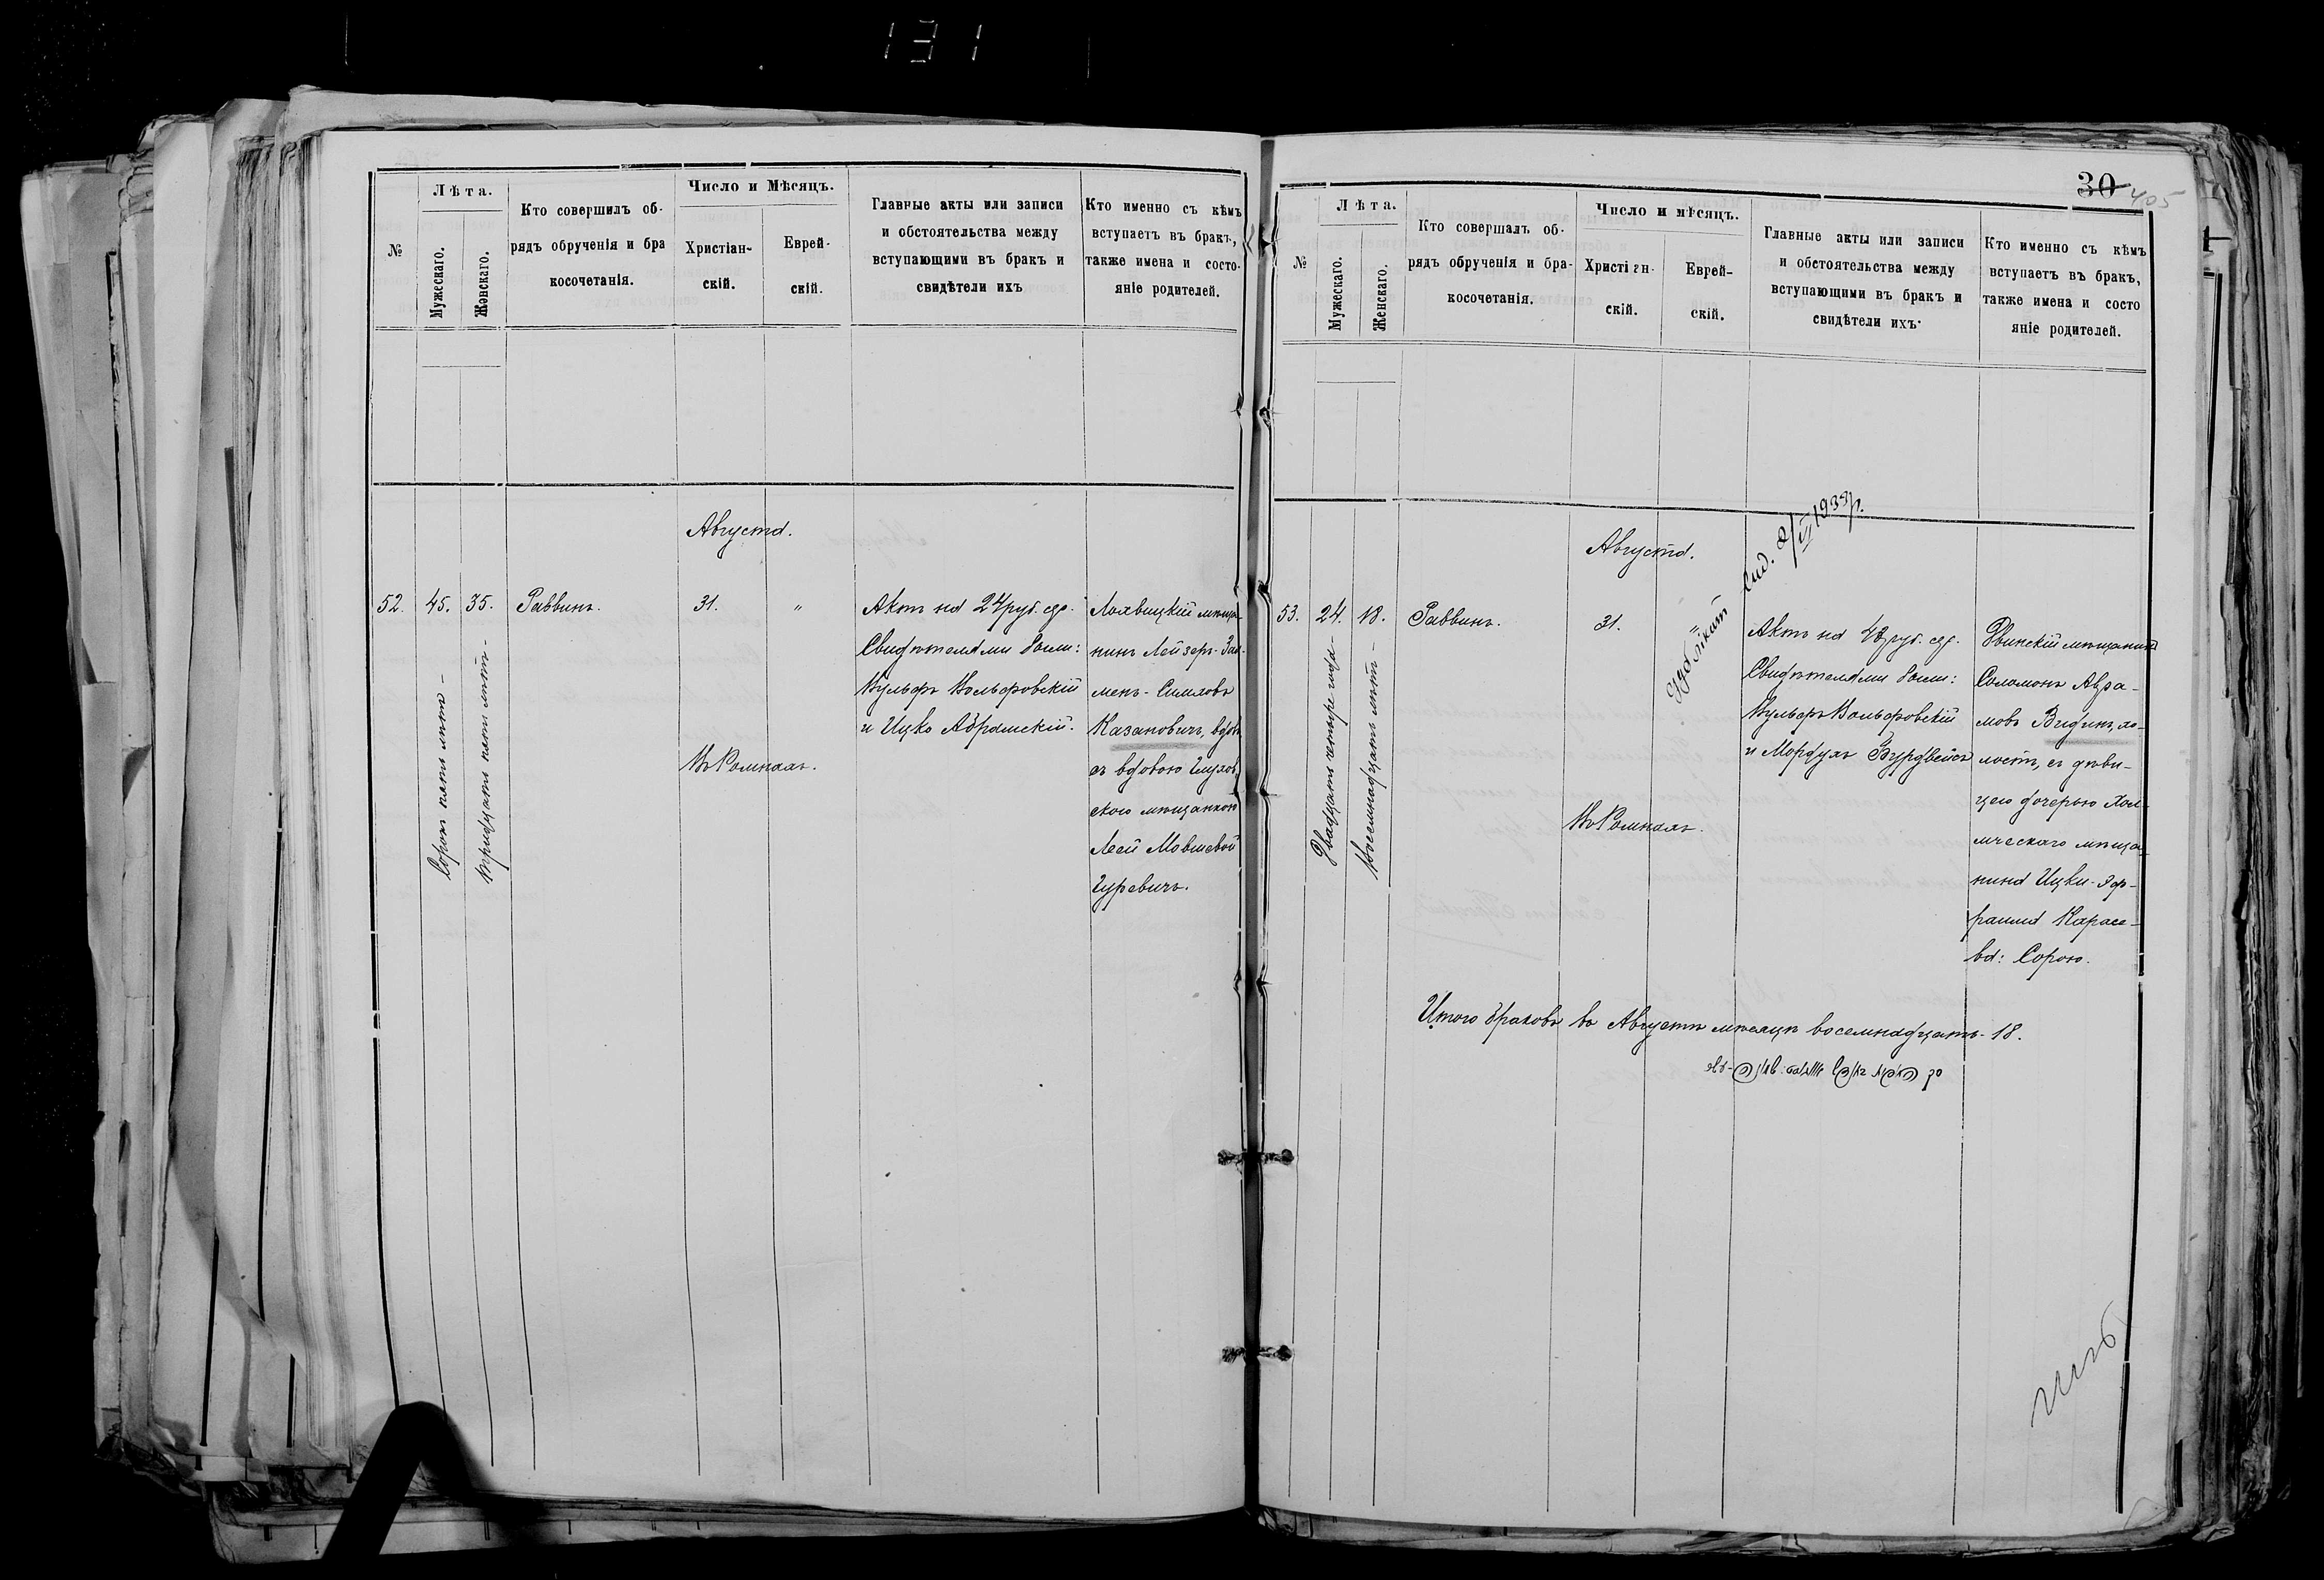 131
№
Лѣта.
Мужескаго.
Женскаго.
Кто совершилъ об-
рядъ обрученія и бра
косочетанія.
Число и Мѣсяцъ.
Христіан-
скій.
Еврей-
скій.
Главные акты или записи
и обстоятельства между
вступающими въ бракъ и
свидѣтели ихъ
Кто именно съ кѣмъ
вступаетъ въ бракъ,
также имена и состо-
яніе родителей.
Августа.
52.
45.
Сорокъ пять лѣтъ -
35.
тридцать пять лѣтъ -
Раввинъ.
31.
"
Въ Ромнахъ.
Актъ на 24 руб. сер.
Свидѣтелями были:
Вульфъ Вольфовскій
и Ицко Абрамскій.
Лохвицкій мѣща-
нинъ Лейзеръ-Зал-
менъ-Симховъ
Казановичъ, вдовъ
съ вдовою Глухов
скою мѣщанкою
Леей Мовшевой
Гуревичъ.
30 405
№
Лѣта.
Мужескаго.
Женскаго.
Кто совершалъ об-
рядъ обрученія и бра-
косочетанія.
Число и мѣсяцъ.
Христіан-
скій.
Еврей-
скій.
Главные акты или записи
и обстоятельства между
вступающими въ бракъ и
свидѣтели ихъ
Кто именно съ кѣмъ
вступаетъ въ бракъ,
также имена и состо
яніе родителей.
Августа.
53.
24.
Двадцать четыре года -
18.
Восемнадцать лѣтъ -
Раввинъ.
31.
"
Въ Ромнахъ.
Актъ на 48 руб. сер.
Свидѣтелями были:
Вульфъ Вольфовскій
и Мордухъ Бурдвейсъ
Двинскій мѣщанинъ
Соломонъ Авра-
мовъ Видинъ, хо-
лостъ, съ дѣви-
цею дочерью Хол-
мческаго мѣща-
нина Ицки-Эф-
раима Карасе-
ва: Сорою.
Итого браковъ въ Августѣ мѣсяцѣ восемнадцать - 18.